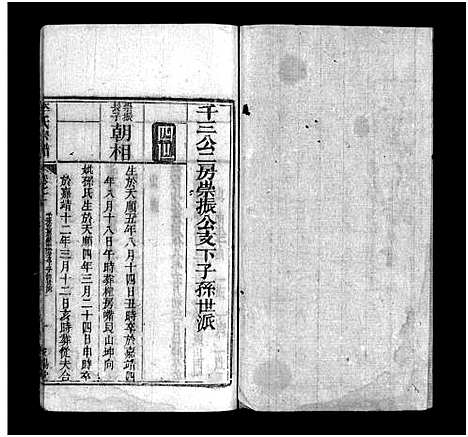 千三公二房崇振公支下子孫世派
四世
崇振長子
朝相
生於天順五年八月十四日丑時卒於嘉靖四
年八月十八日午時葬
嘴艮山坤向
妣孫氏生於天順四年三月二十四日申時卒
於嘉靖十二年三月十二日亥時葬從夫合